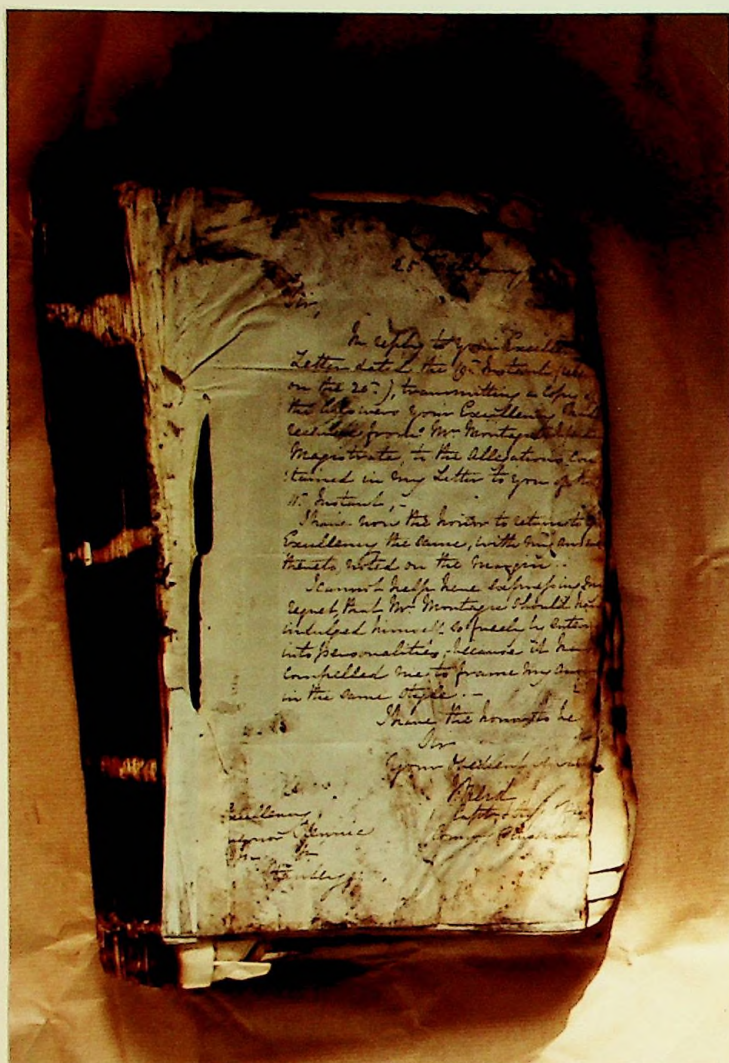 25
Sir,
In reply to your Excell
Letter dated the Instant
on the 20th), transmitting a Copy of
the Answers your Excellency
received from Mr Montagu
Magistrate, to the Allegations Con
tained in my Letter to you of the
Instant, -
I have now the honor to return to
Excellency the same, with my answ
thereto noted on the Margin. -
I cannot help here expressing my
regret, that Mr Montagu should ha
indulged himself so freely to enter
into personalities, because it ha
compelled me to frame my ans
in the same style. -
I have the honor to be
Sir
Your Obedient
Excellency
Rennie
Stanley